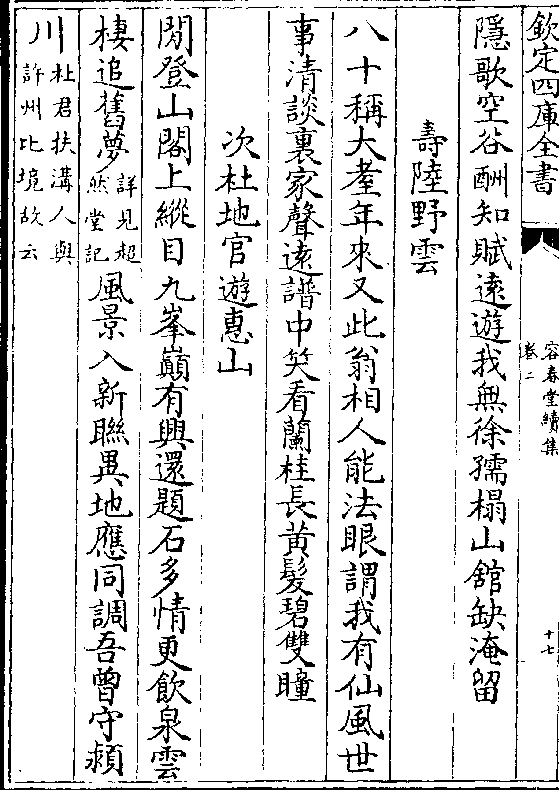 欽定四庫全書
容春堂續集
卷二
十七
隱歌空谷酬知賦遠遊我無徐孺榻山舘缺淹留
壽陸野雲
八十稱大耋年來又此翁相人能法眼謂我有仙風世
事清談裏家聲遠譜中笑看蘭桂長黄髮碧雙瞳
次杜地官遊惠山
閒登山閣上縱目九峯巔有興還題石多情更飲泉雲
棲追舊夢詳見超然堂記風景入新聯異地應同調吾曾守潁
川杜君扶溝人與許州比境故云